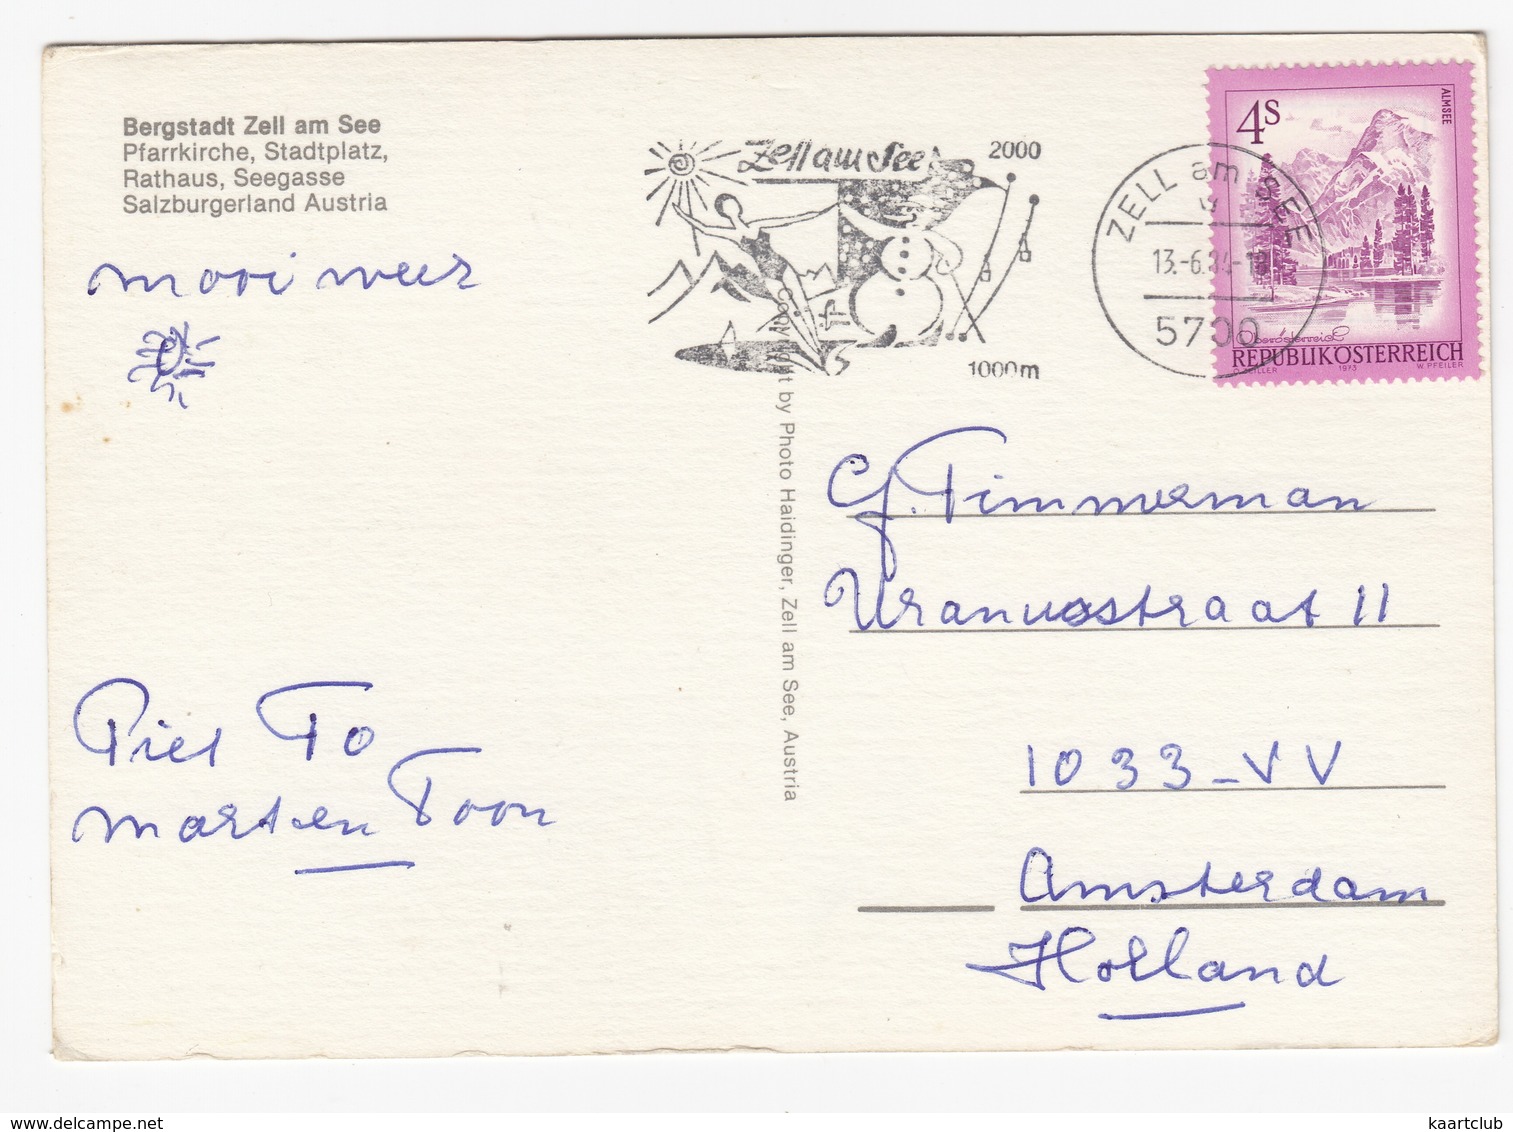 Bergstadt Zell am See
Pfarrkirche, Stadtplatz,
Rathaus, Seegasse
Salzburgerland Austria
mooi weer
Piet To
Marten Toon
Copyright by Photo Haidinger, Zell am See, Austria
Zell am See
2000
1000m
ZELL am SEE
13.-6.84-18
5700
4S
ALMSEE
Oberösterreich
REPUBLIK ÖSTERREICH
O. ZEILLER 1973 W. PFEILER
G. Timmerman
Uranusstraat 11
1033-VV
Amsterdam
Holland
delcampe.net
kaartclub